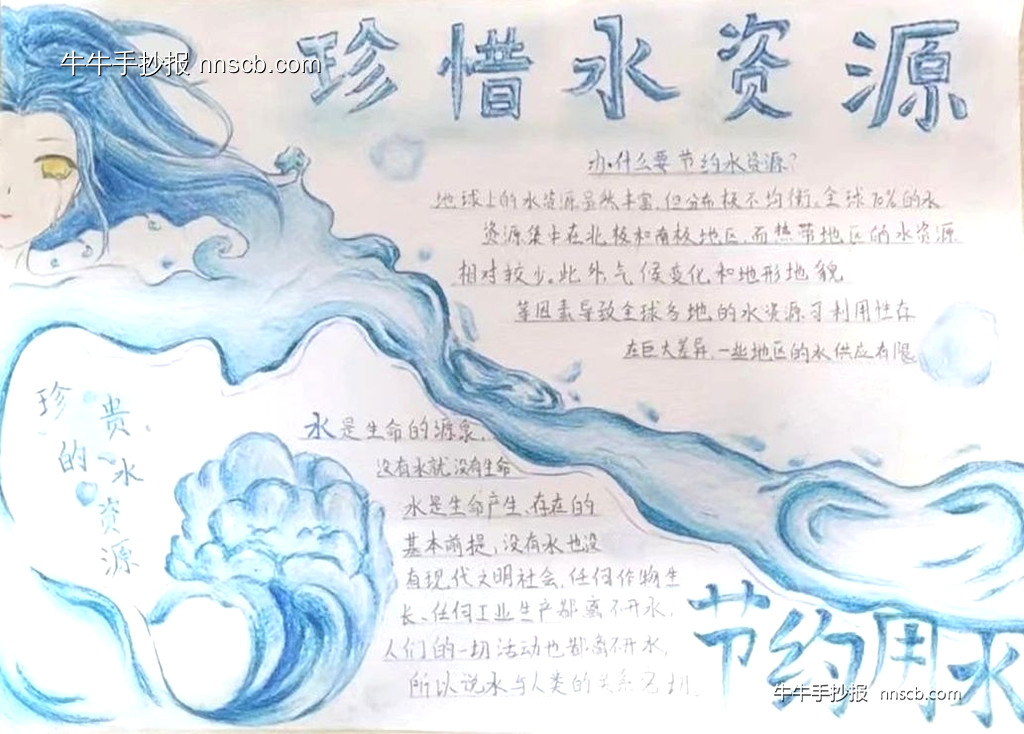 牛牛手抄报 nnscb.com
珍惜水资源
为什么要节约水资源?
地球上的水资源虽然丰富,但分布极不均衡,全球70%的水
资源集中在北极和南极地区,而热带地区的水资源
相对较少。此外气候变化和地形地貌
等因素导致全球各地的水资源可利用性存
在巨大差异,一些地区的水供应有限
珍贵的水资源
水是生命的源泉,
没有水就没有生命
水是生命产生、存在的
基本前提,没有水也没
有现代文明社会,任何作物生
长、任何工业生产都离不开水,
人们的一切活动也都离不开水,
所以说水与人类的关系密切
节约用水
牛牛手抄报 nnscb.com